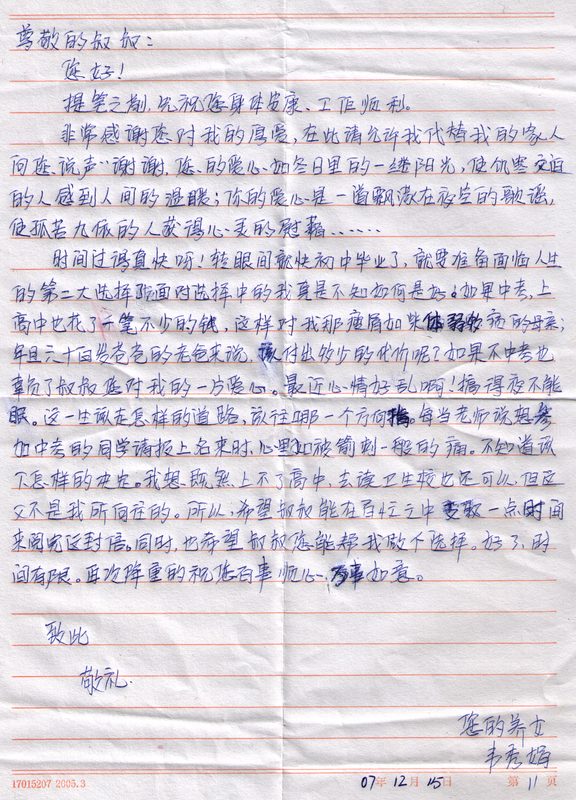 尊敬的叔叔：
您好！
提笔之前，先祝您身体安康、工作顺利。
非常感谢您对我的厚爱，在此请允许我代替我的家人
向您说声"谢谢，您的爱心如冬日里的一缕阳光，使饥寒交迫
的人感到人间的温暖；你的爱心是一道飘荡在夜空的歌谣，
使孤苦九依的人获得心灵的慰藉……
时间过得真快呀！转眼间就快初中毕业了，就要准备面临人生
的第二大选择，面对选择中的我真是不知如何是好。如果中考，上
高中也花了一笔不少的钱，这样对我那瘦肩如柴体弱多病的母亲；
年旦六十百岁爸爸的老爸来说，该付出多少的代价呢？如果不中考也
辜负了叔叔您对我的一片爱心。最近心情好乱啊！搞得夜不能
眠。这一生该走怎样的道路，该往哪一个方向指。每当老师说想参
加中考的同学请报上名来时，心里如被箭刺一般的痛。不知道该
下怎样的决定。我想既然上不了高中，去读卫生校也还可以，但这
又不是我所向往的。所以，希望叔叔能在百忙之中 一点时间
来阅完这封信。同时，也希望叔叔您能帮我做个选择。好了，时
间有限。再次隆重的祝您百事顺心、万事如意。
致此
敬礼
您的养女
韦秀娟
17015207 2005.3
07年12月15日
第11页